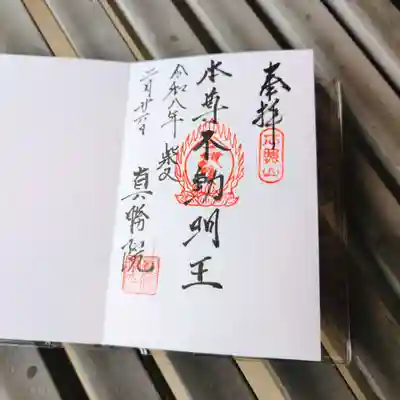 奉拝
本尊不動明王
令和八年
二月廿六日
柴又
真勝院